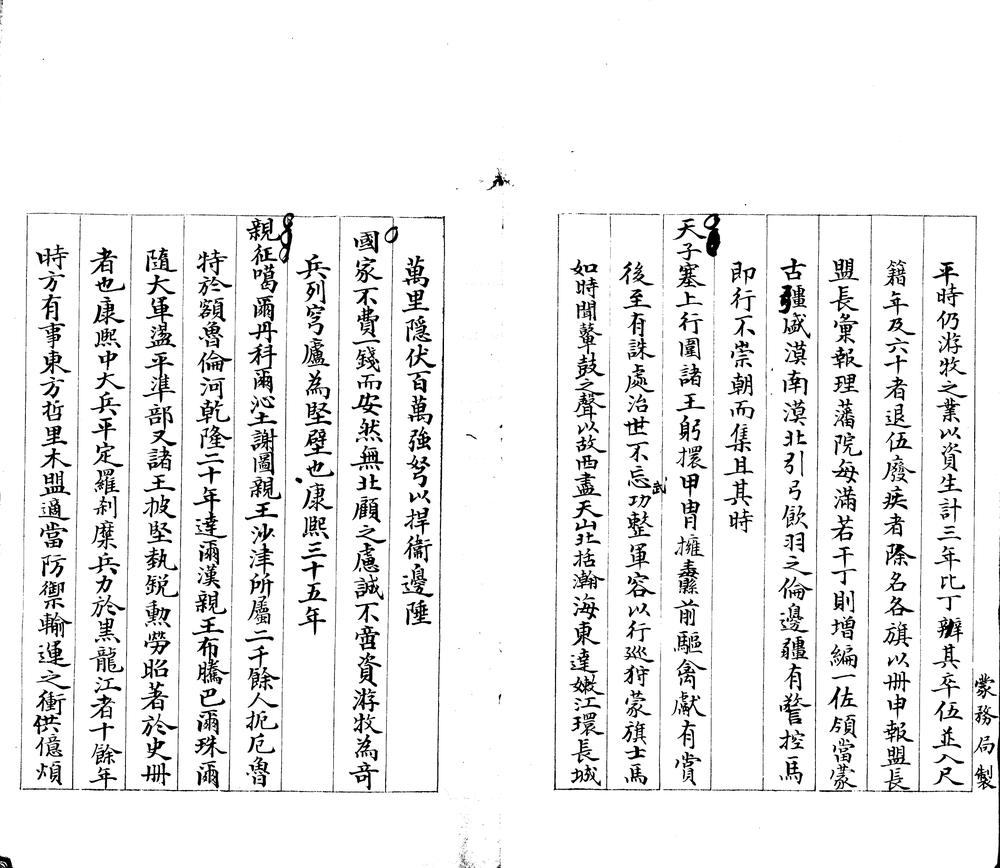 平時仍游牧之業以資生計三年比丁辦其卒伍並入尺
籍年及六十者退伍廢疾者除名各旗以冊申報盟長
盟長彙報理藩院每滿若干丁則增編一佐領當蒙
古疆盛漠南漠北引弓飲羽之倫邊疆有警控馬
即行不崇朝而集且其時
天子塞上行圍諸王躬擐甲胄擁纛前驅禽獻有賞
後至有誅處治世不忘武功整軍容以行巡狩蒙旗士馬
如時聞鼙鼓之聲以故西盡天山北括瀚海東達嫩江環長城
蒙務局製
萬里隱伏百萬強弩以捍衞邊陲
國家不費一錢而安然無北顧之慮誠不啻資游牧為奇
兵列穹廬為堅壁也康熙三十五年
親征噶爾丹科爾沁土謝圖親王沙津所屬二千餘人扼厄魯
特於額魯倫河乾隆二十年達爾漢親王布騰巴爾珠爾
隨大軍盪平準部又諸王披堅執銳勳勞昭著於史冊
者也康熙中大兵平定羅剎糜兵力於黑龍江者十餘年
時方有事東方哲里木盟適當防禦輸運之衝供億煩